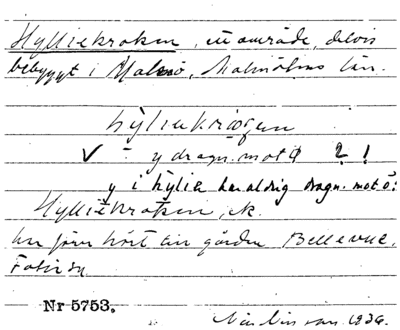 Hylliekroken, ett område, delvis
bebyggt i Malmö, Malmöhus län.
hyliekrɷgen
✓ – y dragn. mot ö ? !
y i hylie har aldrig dragn. mot ö!
Hylliekroken, ek.
har förr hört till gården Bellevue.
Nr 5753.
1936.